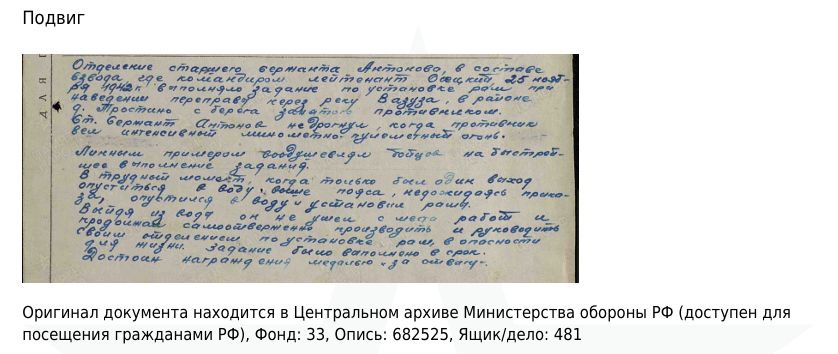 Подвиг
для п
Отделение старшего сержанта Антонова, в составе
взвода где командиром лейтенант Осецкий, 25 нояб-
ря 1942г выполняло задание по установке рам при
наведении переправы через реку Вазуза, в районе
д. Тростино с берега занятого противником.
Ст. сержант Антонов не дрогнул когда противник
вел интенсивный минометно-пулеметный огонь.
Личным примером воодушевлял бойцов на быстрей-
шее выполнение задания.
В трудный момент, когда только был один выход
опуститься в воду, выше пояса, недожидаясь прика-
за, опустился в воду и установил раму.
Выйдя из воды он не ушел с места работ и
продолжал самоотверженно производить и руководить
своим отделением по установке рам, в опасности
для жизни. Задание было выполнено в срок.
Достоин награждения медалью "за отвагу".
Оригинал документа находится в Центральном архиве Министерства обороны РФ (доступен для
посещения гражданами РФ), Фонд: 33, Опись: 682525, Ящик/дело: 481